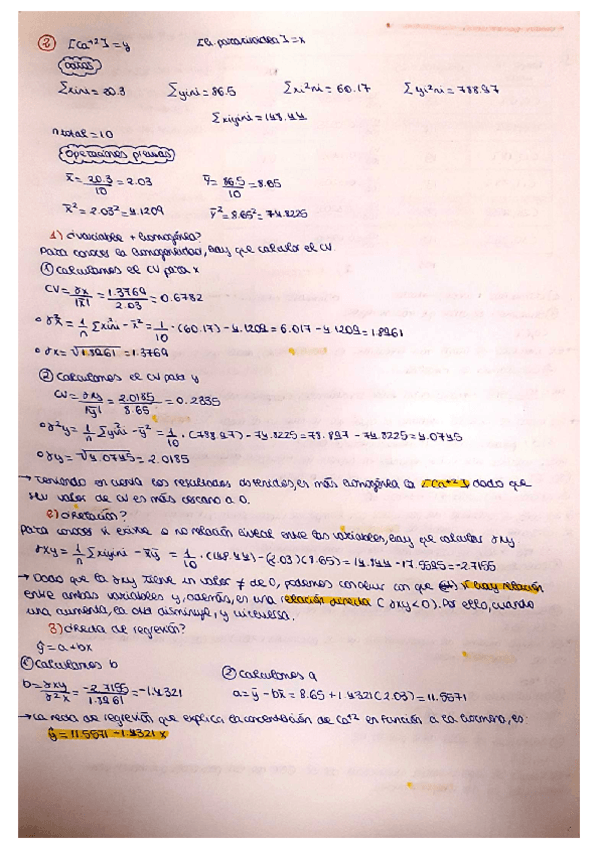 ② [Ca⁺²] = y [H. paratiroidea] = x
Datos
Σxini = 20.3 Σyini = 86.5 Σxi²ni = 60.17 Σyi²ni = 788.97
Σxiyini = 148.44
n total = 10
Operaciones previas
x̄ = 20.3/10 = 2.03 ȳ = 86.5/10 = 8.65
x̄² = 2.03² = 4.1209 ȳ² = 8.65² = 74.8225
1) ¿Variable + homogénea?
Para conocer la homogeneidad, hay que calcular el CV
① Calculamos el CV para x
CV = σx/|x̄| = 1.3769/2.03 = 0.6782
σ²x = 1/n Σxi²ni - x̄² = 1/10 · (60.17) - 4.1209 = 6.017 - 4.1209 = 1.8961
σx = √1.8961 = 1.3769
② Calculamos el CV para y
CV = σy/|ȳ| = 2.0185/8.65 = 0.2335
σ²y = 1/n Σyi²ni - ȳ² = 1/10 · (788.97) - 74.8225 = 78.897 - 74.8225 = 4.0745
σy = √4.0745 = 2.0185
→ Teniendo en cuenta los resultados obtenidos, es más homogénea la [Ca⁺²], dado que
su valor de CV es más cercano a 0.
2) ¿Relación?
Para conocer si existe o no relación lineal entre las variables, hay que calcular σxy
σxy = 1/n Σxiyini - x̄ȳ = 1/10 · (148.44) - (2.03)(8.65) = 14.844 - 17.5595 = -2.7155
→ Dado que la σxy tiene un valor ≠ de 0, podemos concluir con que sí hay relación
entre ambas variables y, además, es una relación directa (σxy < 0). Por ello, cuando
una aumenta, la otra disminuye, y viceversa.
3) ¿Recta de regresión?
ŷ = a + bx
① Calculamos b ② Calculamos a
b = σxy/σ²x = -2.7155/1.8961 = -1.4321 a = ȳ - bx̄ = 8.65 + 1.4321(2.03) = 11.5571
→ La recta de regresión que explica la concentración de Ca⁺² en función a la hormona, es:
ŷ = 11.5571 - 1.4321x